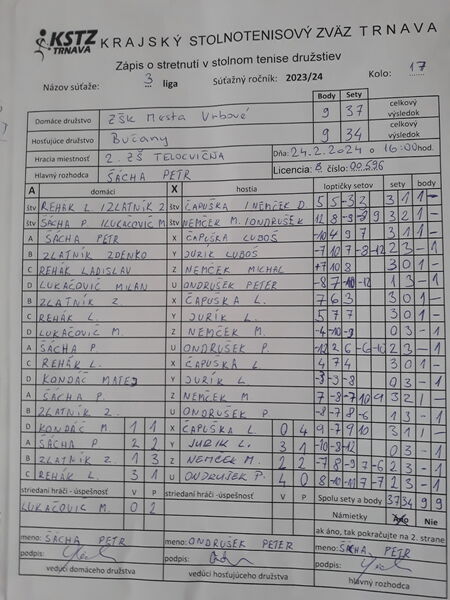 KSTZ TRNAVA KRAJSKÝ STOLNOTENISOVÝ ZVÄZ TRNAVA
Zápis o stretnutí v stolnom tenise družstiev
Názov súťaže: 3 liga Súťažný ročník: 2023/24 Kolo: 17
Body Sety
Domáce družstvo ZŠK Mesta Vrbové 9 37 celkový výsledok
Hosťujúce družstvo Bučany 9 34 celkový výsledok
Hracia miestnosť 2. ZŠ TELOCVIČŇA Dňa: 24.2.2024 o 16:00 hod.
Hlavný rozhodca ŠÁCHA PETR Licencia: B číslo: 00596
A domáci X hostia loptičky setov sety body
štv REHÁK L / ZLATNÍK Z štv ČAPUŠKA / NEMČEK D 5 5 -3 2 3 1 1 -
štv ŠÁCHA P / LUKAČOVIČ M štv NEMČEK M. / ONDRUŠEK 3 2 1 -
A ŠÁCHA PETR X ČAPUŠKA ĽUBOŠ -10 4 9 7 3 1 1 -
B ZLATNÍK ZDENKO Y JURÍK ĽUBOŠ -7 10 7 -8 -12 2 3 - 1
C REHÁK LADISLAV Z NEMČEK MICHAL 7 10 3 3 0 1 -
D LUKAČOVIČ MILAN U ONDRUŠEK PETER -8 7 -10 -12 1 3 - 1
B ZLATNÍK Z. X ČAPUŠKA L. 7 6 3 3 0 1 -
C REHÁK L. Y JURÍK L. 5 7 7 3 0 1 -
D LUKAČOVIČ M. Z NEMČEK M. -4 -10 -9 0 3 - 1
A ŠÁCHA P. U ONDRUŠEK P. -12 2 6 -6 -10 2 3 - 1
C REHÁK L. X ČAPUŠKA L. 4 7 4 3 0 1 -
D KONDÁČ MATEJ Y JURÍK L. -3 -3 -8 0 3 - 1
A ŠÁCHA P. Z NEMČEK M 7 -8 -7 10 9 3 2 1 -
B ZLATNÍK Z. U ONDRUŠEK P. -8 -7 8 -6 1 3 - 1
D KONDÁČ M. 1 1 X ČAPUŠKA L. 0 4 -9 7 9 10 3 1 1 -
A ŠÁCHA P 2 2 Y JURÍK L. 3 1 -10 -8 -12 0 3 - 1
B ZLATNÍK Z. 1 3 Z NEMČEK M. 2 2 -7 8 -9 7 -6 2 3 - 1
C REHÁK L. 3 1 U ONDRUŠEK P. 4 0 8 -10 -11 7 -7 2 3 - 1
striedaní hráči - úspešnosť V P striedaní hráči - úspešnosť V P Spolu sety a body 37 34 9 9
LUKAČOVIČ M. 0 2 Námietky Áno Nie
ak áno, tak pokračujte na 2. strane
meno: ŠÁCHA PETR meno: ONDRUŠEK PETER meno: ŠÁCHA PETR
podpis: podpis: podpis:
vedúci domáceho družstva vedúci hosťujúceho družstva hlavný rozhodca